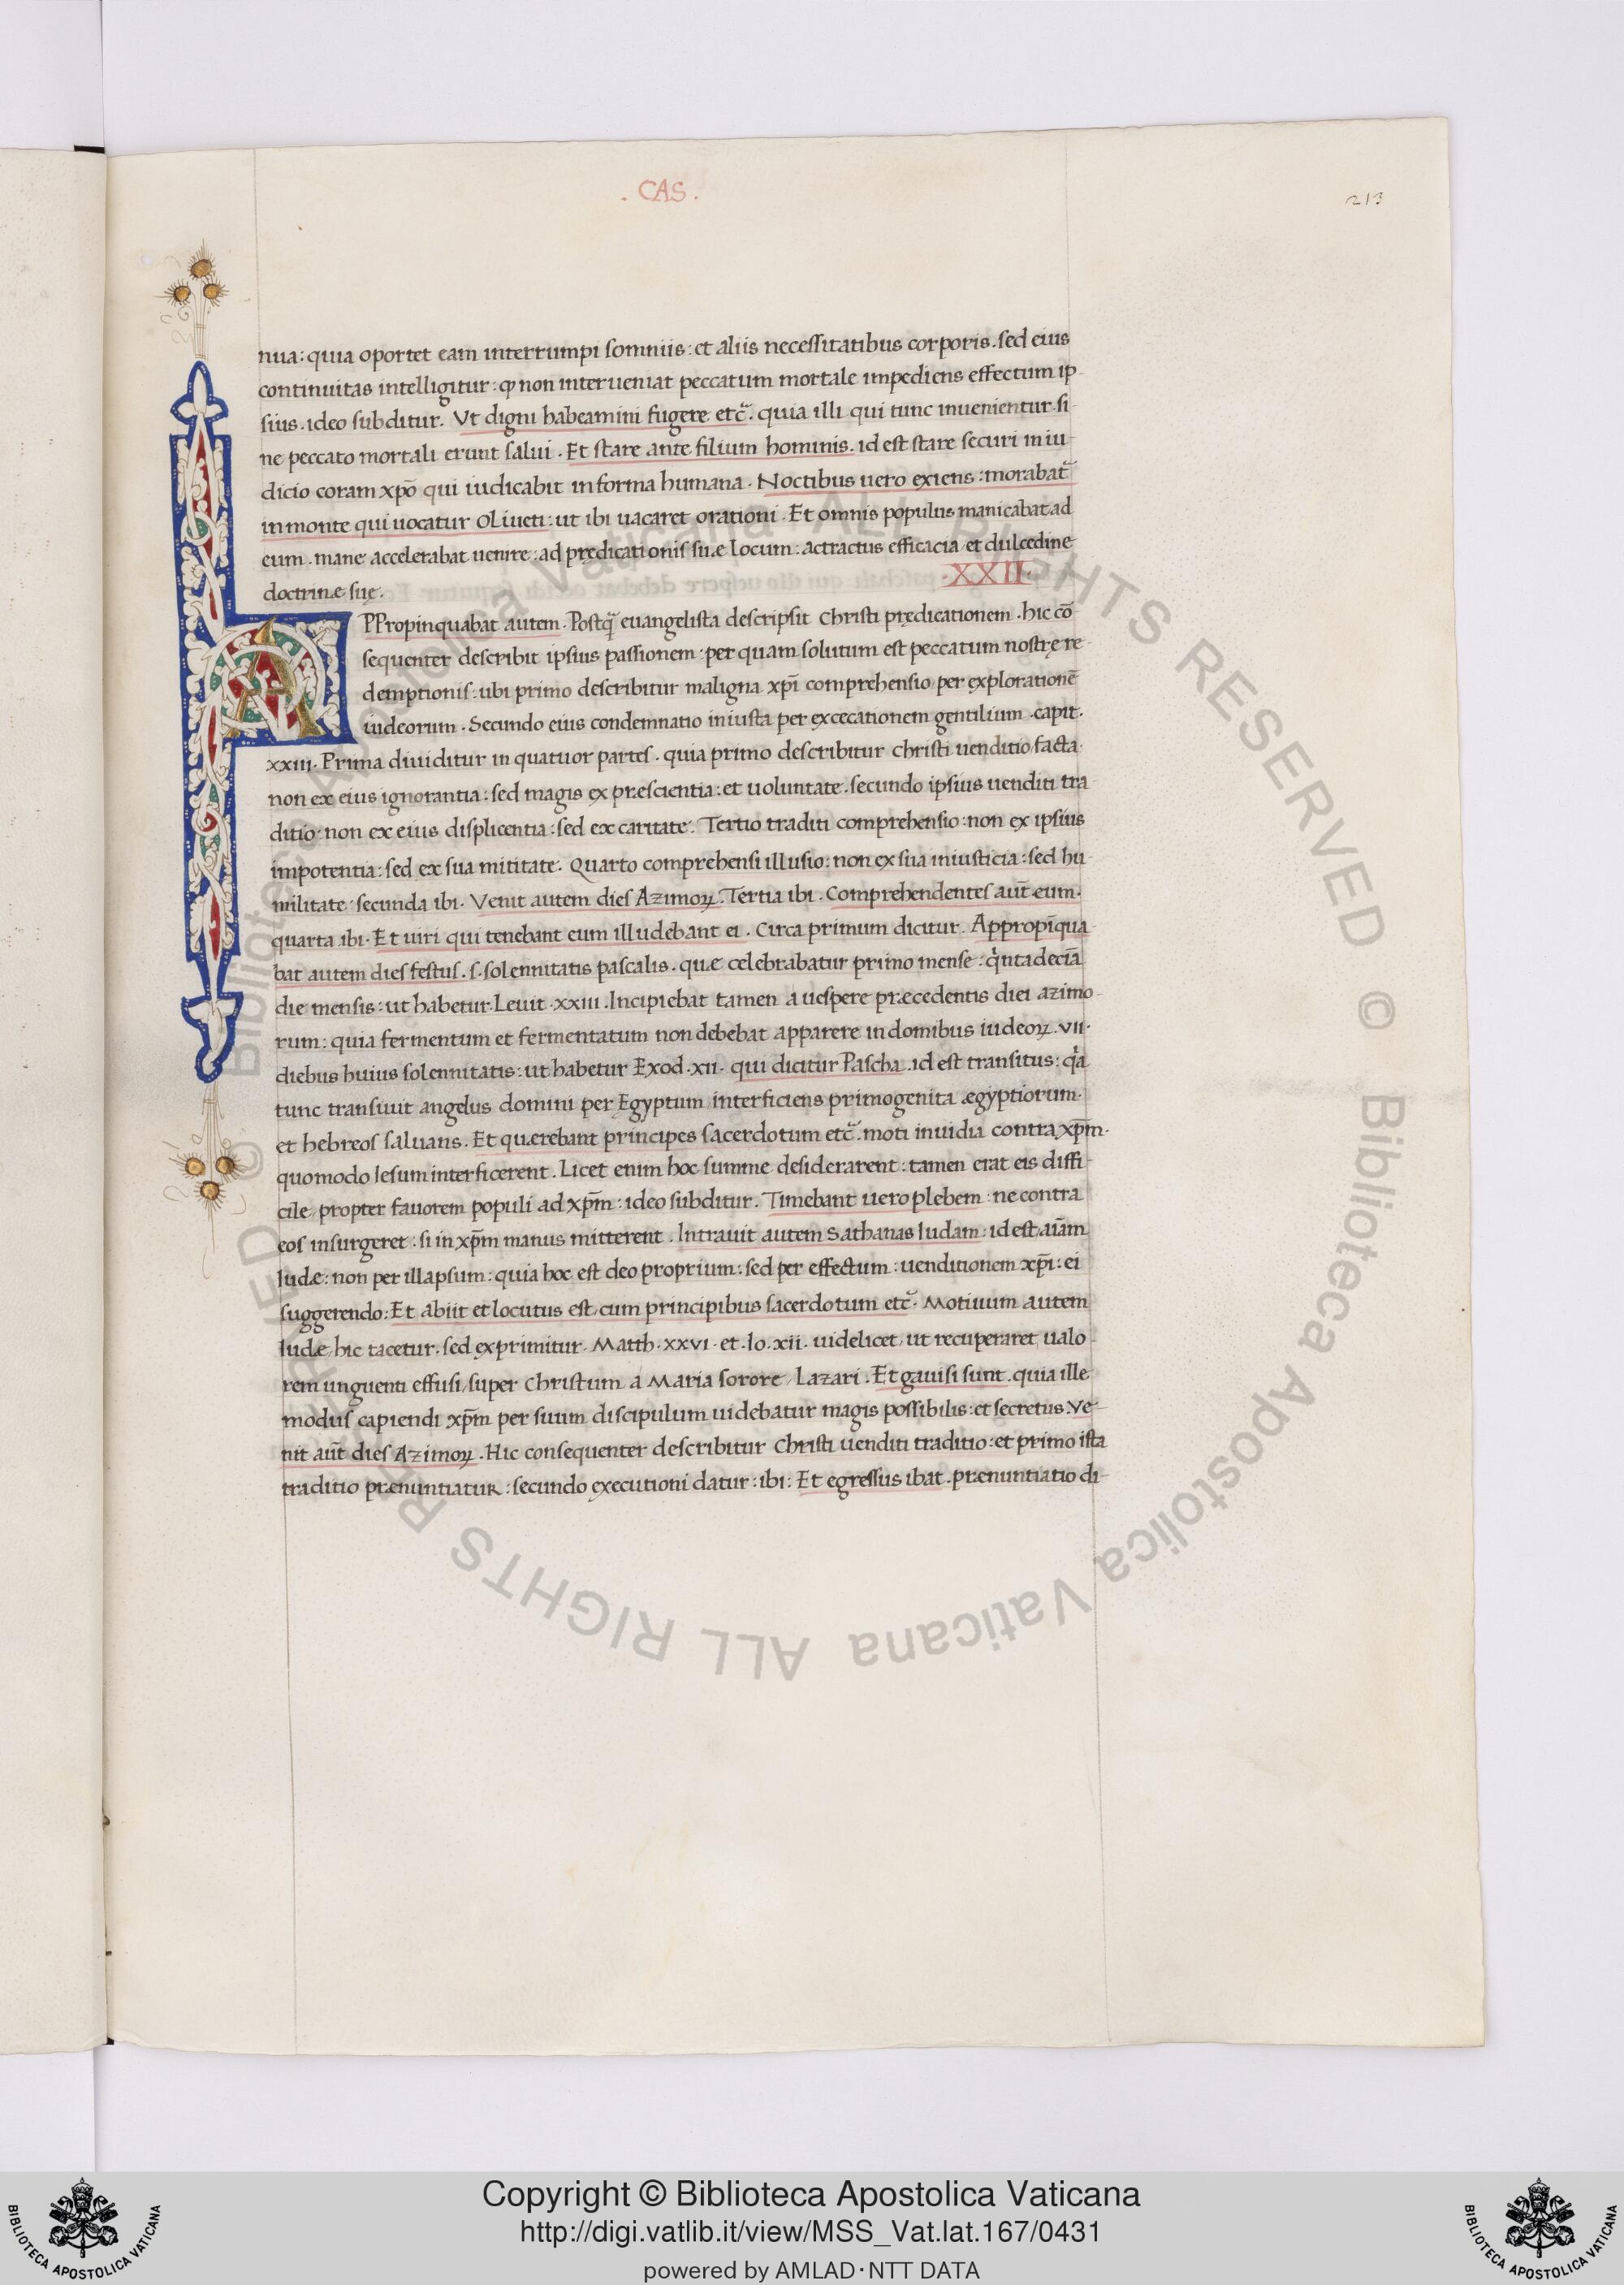 . CAS .
213
nua: quia oportet eam interrumpi somniis: et aliis necessitatibus corporis. sed eius
continuitas intelligitur: ꝙ non interueniat peccatum mortale impediens effectum ip-
sius. ideo subditur. Vt digni habeamini fugere etc̃. quia illi qui tunc inuenientur. si-
ne peccato mortali erunt salui. Et stare ante filium hominis. id est stare securi in iu-
dicio coram xp̄o qui iudicabit in forma humana. Noctibus uero exiens: morabat᷑
in monte qui uocatur Oliueti: ut ibi uacaret orationi. Et omnis populus manicabat ad
eum. mane accelerabat uenire: ad prędicationis suæ locum: actractus efficacia/ et dulcedine
doctrinæ suę.
.XXII.
APPropinquabat autem. Postq̃ euangelista descripsit Christi prędicationem. hic cō-
sequenter describit ipsius passionem: per quam solutum est peccatum nostrę re-
demptionis: ubi primo describitur maligna xp̄i comprehensio/ per explorationē
iudeorum. Secundo eius condemnatio iniusta per excecationem gentilium. capit.
xxiii. Prima diuiditur in quatuor partes. quia primo describitur christi uenditio/ facta.
non ex eius ignorantia: sed magis ex præscientia: et uoluntate. secundo ipsius uenditi tra-
ditio: non ex eius displicentia: sed ex caritate. Tertio traditi comprehensio: non ex ipsius
impotentia: sed ex sua mititate. Quarto comprehensi illusio: non ex sua iniusticia: sed hu-
militate: secunda ibi. Venit autem dies Azimoꝝ. Tertia ibi. Comprehendentes aut̄ eum.
quarta ibi. Et uiri qui tenebant eum illudebant ei. Circa primum dicitur. Appropīqua-
bat autem dies festus. s. solennitatis pascalis. quæ celebrabatur primo mense: qͥntadecīa
die mensis: ut habetur Leuit. xxiii. Incipiebat tamen a uespere præcedentis diei azimo-
rum: quia fermentum et fermentatum non debebat apparere in domibus iudeoꝝ. vii.
diebus huius solennitatis: ut habetur Exod. xii. qui dicitur Pascha. id est transitus: qͥa
tunc transiuit angelus domini per Egyptum/ interficiens primogenita ægyptiorum.
et hebreos saluans. Et quærebant principes sacerdotum etc̃. moti inuidia contra xp̄m.
quomodo Iesum interficerent. Licet enim hoc summe desiderarent: tamen erat eis diffi-
cile/ propter fauorem populi ad xp̄m: ideo subditur. Timebant uero plebem: ne contra
eos insurgeret: si in xp̄m manus mitterent. Intrauit autem Sathanas Iudam: id est aīam
Iudæ: non per illapsum: quia hoc est deo proprium: sed per effectum: uenditionem xp̄i: ei
suggerendo: Et abiit et locutus est cum principibus sacerdotum etc̃. Motiuum autem
Iudæ/ hic tacetur. sed exprimitur. Matth. xxvi. et. Io. xii. uidelicet/ ut recuperaret ualo-
rem unguenti effusi/ super Christum a Maria sorore Lazari. Et gauisi sunt. quia ille
modus capiendi xp̄m per suum discipulum uidebatur magis possibilis: et secretus: Ve-
nit aut̄ dies Azimoꝝ. Hic consequenter describitur Christi uenditi traditio: et primo ista
traditio prænuntiatur: secundo executioni datur: ibi: Et egressus ibat. prænuntiatio di-
© Biblioteca Apostolica Vaticana ALL RIGHTS RESERVED © Biblioteca Apostolica Vaticana ALL RIGHTS RESERVED
Copyright © Biblioteca Apostolica Vaticana
http://digi.vatlib.it/view/MSS_Vat.lat.167/0431
powered by AMLAD·NTT DATA
BIBLIOTECA APOSTOLICA VATICANA
BIBLIOTECA APOSTOLICA VATICANA